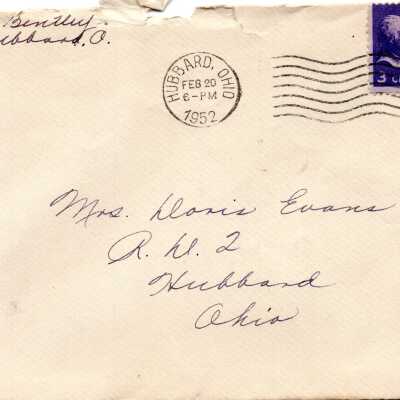 Bentley
Hubbard, O.
HUBBARD, OHIO
FEB 20
6-PM
1952
3
Mrs. Doris Evans
R. D. 2
Hubbard
Ohio